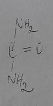 NH2
C = i
NH2